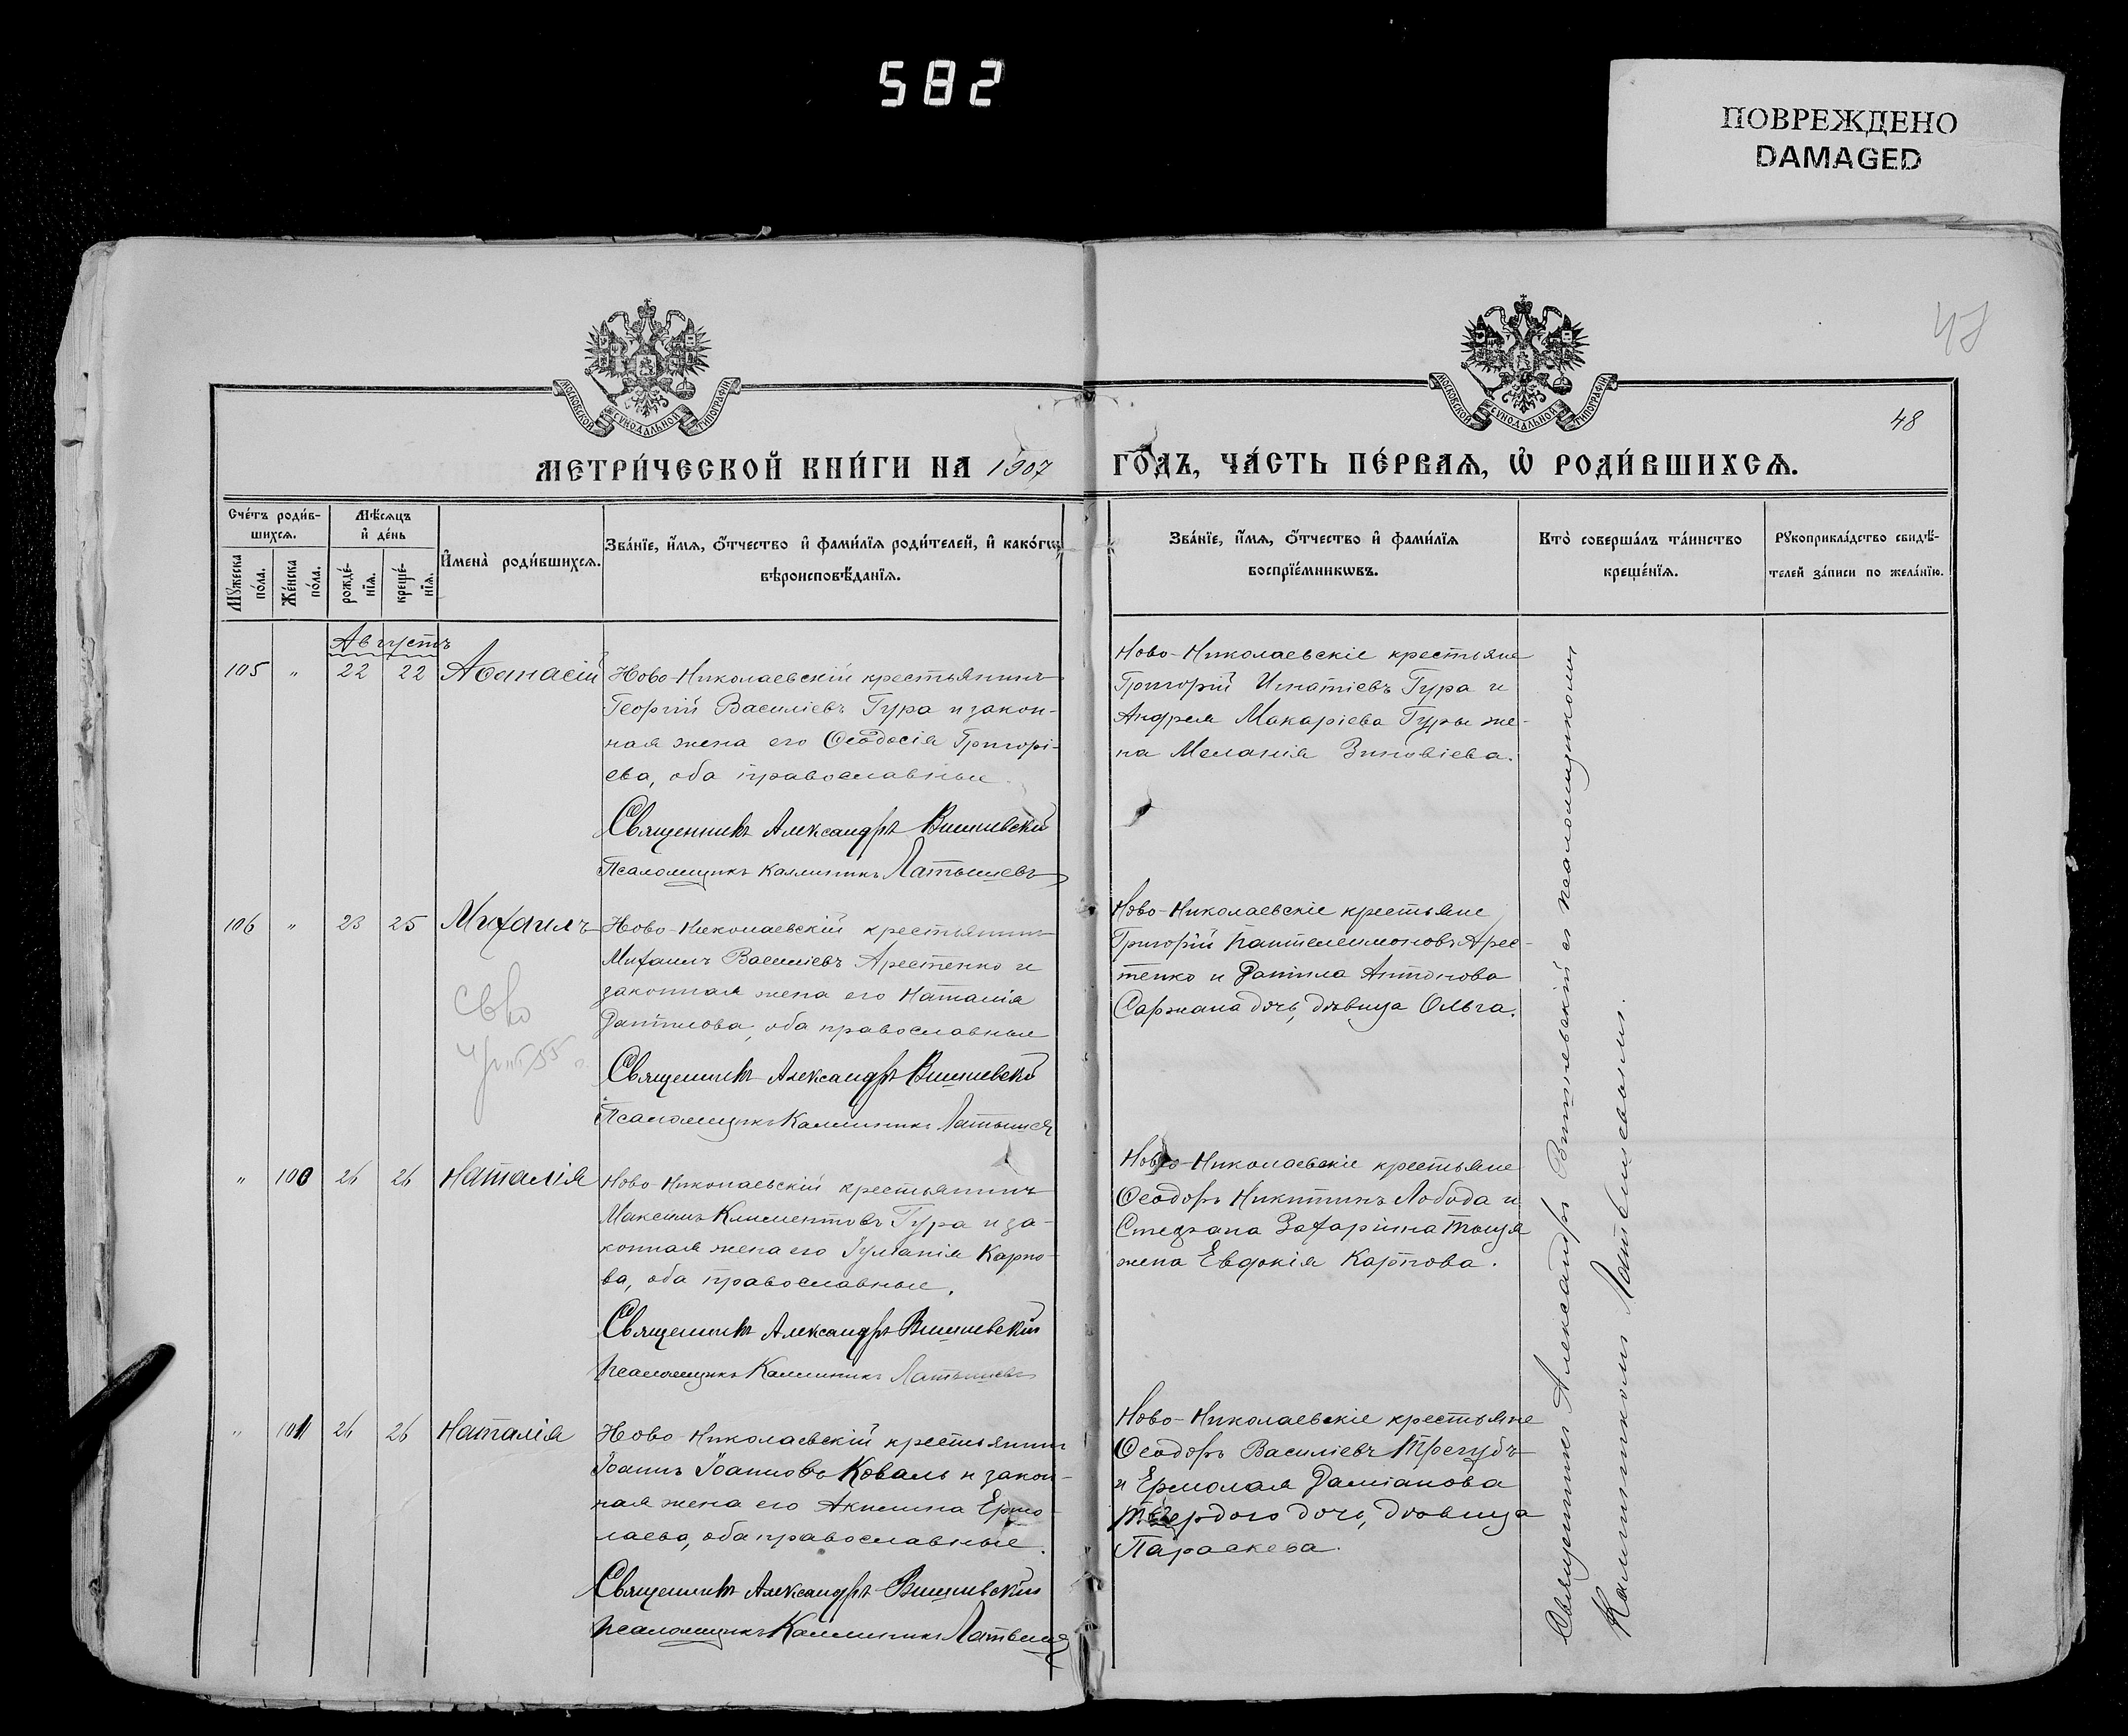 582
ПОВРЕЖДЕНО
DAMAGED
48
48
МОСКОВСКОЙ СѴНОДАЛЬНОЙ ТИПОГРАФІИ
МОСКОВСКОЙ СѴНОДАЛЬНОЙ ТИПОГРАФІИ
МЕТРИ́ЧЕСКОЙ КНИ́ГИ НА 1907
ГО́ДЪ, ЧА́СТЬ ПЕ́РВАѦ, Ѡ҆ РОДИ́ВШИХСѦ.
Сче́тъ роди́в-
шихсѧ.
Мꙋ́жеска
по́ла.
Же́нска
по́ла.
Мѣ́сѧцъ
и҆ де́нь
рожде́-
нїѧ.
креще́-
нїѧ.
И҆мена̀ роди́вшихсѧ.
Зва́нїе, и҆́мѧ, ѻ҆́тчество и҆ фами́лїѧ роди́телей, и҆ како́гѡ
вѣроисповѣ́данїѧ.
Зва́нїе, и҆́мѧ, ѻ҆́тчество и҆ фами́лїѧ
воспрїе́мникѡвъ.
Кто̀ соверша́лъ та́инство
креще́нїѧ.
Рꙋкоприкла́дство свидѣ́-
телей за́писи по жела́нїю.
Августъ
105 " 22 22 Аѳанасій
Ново-Николаевскій крестьянинъ
Георгій Василіевъ Гура и закон-
ная жена его Ѳеодосія Григорі-
ева, оба православные.
Священникъ Александръ Вишневскій
Псаломщикъ Каллиникъ Латышевъ
Ново-Николаевскіе крестьяне
Григорій Игнатіевъ Гура и
Андрея Макаріева Гуры же-
на Меланія Зиновіева.
106 " 23 25 Михаилъ
Ново-Николаевскій крестьянинъ
Михаилъ Василіевъ Арестенко и
законная жена его Наталія
Даніилова, оба православные
Священникъ Александръ Вишневскій
Псаломщикъ Каллиникъ Латышев
Ново-Николаевскіе крестьяне
Григорій Пантелеимоновъ Арес-
тенко и Даніила Антонова
Саржана дочь, дѣвица Ольга.
св-во
" 100 26 26 Наталія
Ново-Николаевскій крестьянинъ
Максимъ Климентовъ Гура и за-
конная жена его Іуліанія Карпо-
ва, оба православные.
Священникъ Александръ Вишневскій
Псаломщикъ Каллиникъ Латышевъ
Ново-Николаевскіе крестьяне
Ѳеодоръ Никитинъ Лобода и
Стефана Захаріина
жена Евдокія Карпова.
" 101 26 26 Наталія
Ново Николаевскій крестьянинъ
Іоаннъ Іоанновъ Коваль и закон-
ная жена его Акилина Ермо-
лаева, оба православные.
Священникъ Александръ Вишневскій
Псаломщикъ Каллиникъ Латышев
Ново-Николаевскіе крестьяне
Ѳеодоръ Василіевъ Трегубъ
и Ермолая Даміанова
Твердого дочь, дѣвица
Параскева.
Священникъ Александръ Вишневскій съ псаломщикомъ
Каллиникомъ Латышевымъ.